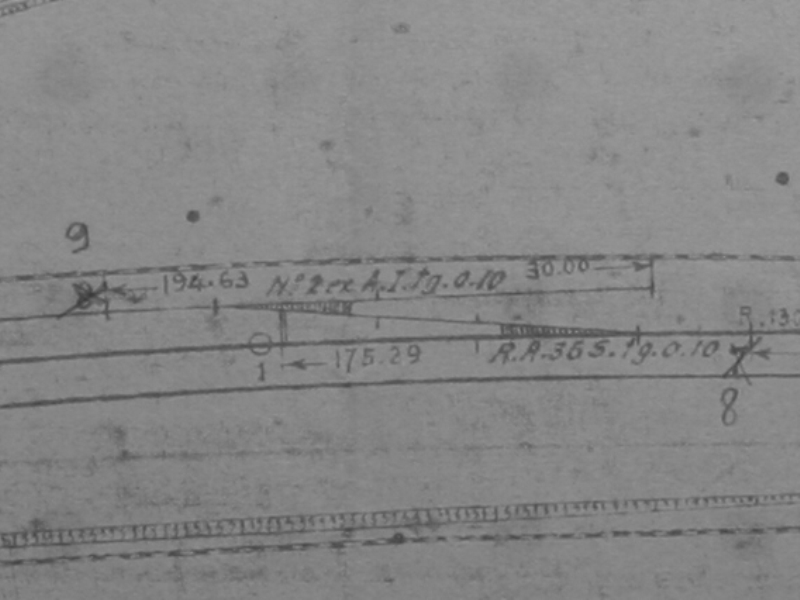 9
194.63 Nº 2 ex A.I. tg. 0.10 30.00
1 175.29 R.A. 36 S. tg. 0.10
8